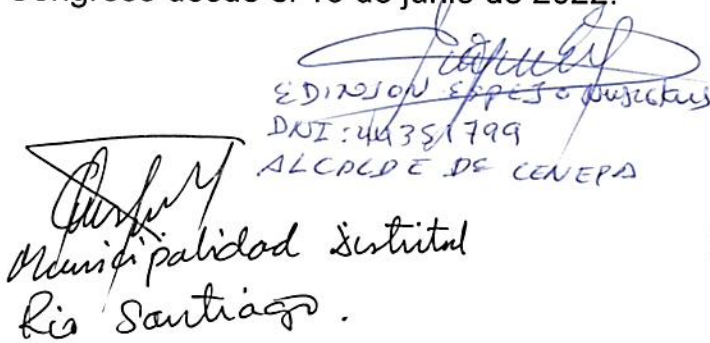 Congreso desde el 16 de junio de 2022.
EDINSON ESPEJO
DNI: 44351799
ALCALDE DE CENEPA
Municipalidad Distrital
Rio Santiago.